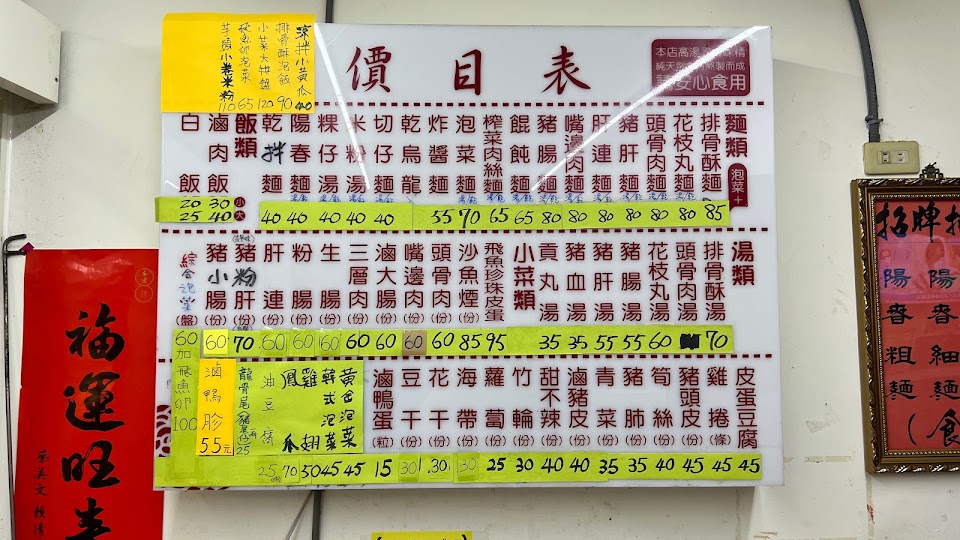 價目表
本店高湯
純天然
製而成
請安心食用
涼拌小黃瓜 40
排骨酥泡飯 90
小菜大拼盤 120
飛魚卵泡菜 65
芋頭小卷米粉 110
麵類
泡菜+
排骨酥麵 85
花枝丸麵 80
頭骨肉麵 80
豬肝麵 80
肝連麵 80
嘴邊肉麵 80
豬腸麵 80
餛飩麵 65
榨菜肉絲麵 65
泡菜麵 70
炸醬麵 55
乾烏龍
切仔麵 40
米粉湯 40
粿仔湯 40
陽春麵 40
乾拌麵 40
飯類 小 大
滷肉飯 30 40
白飯 20 25
湯類
排骨酥湯 70
頭骨肉湯
花枝丸湯 60
豬肝湯 55
豬腸湯 55
豬血湯 35
貢丸湯 35
小菜類
飛魚珍珠皮蛋 95
沙魚煙(份) 85
頭骨肉(份) 60
嘴邊肉(份) 60
滷大腸(份) 60
三層肉(份) 60
生腸(份) 60
粉腸(份) 60
肝連(份) 60
豬粉肝(份) 70
豬小腸(份) 60
綜合泡菜(盤) 60
加飛魚卵 100
皮蛋豆腐 45
雞捲(條) 45
豬頭皮(份) 45
筍絲(份) 40
豬肺(份) 35
青菜(份) 35
滷豬皮(份) 40
甜不辣(份) 40
竹輪(份) 30
蘿蔔(份) 25
海帶(份) 30
花干(份) 30
豆干(份) 30
滷鴨蛋(粒) 15
黃金泡菜 45
韓式泡菜 45
雞翅 50
鳳爪 70
油豆腐 25
龍骨尾
滷鴨胗 55元
福運旺
招牌
陽春細麵
陽春粗麵
(食